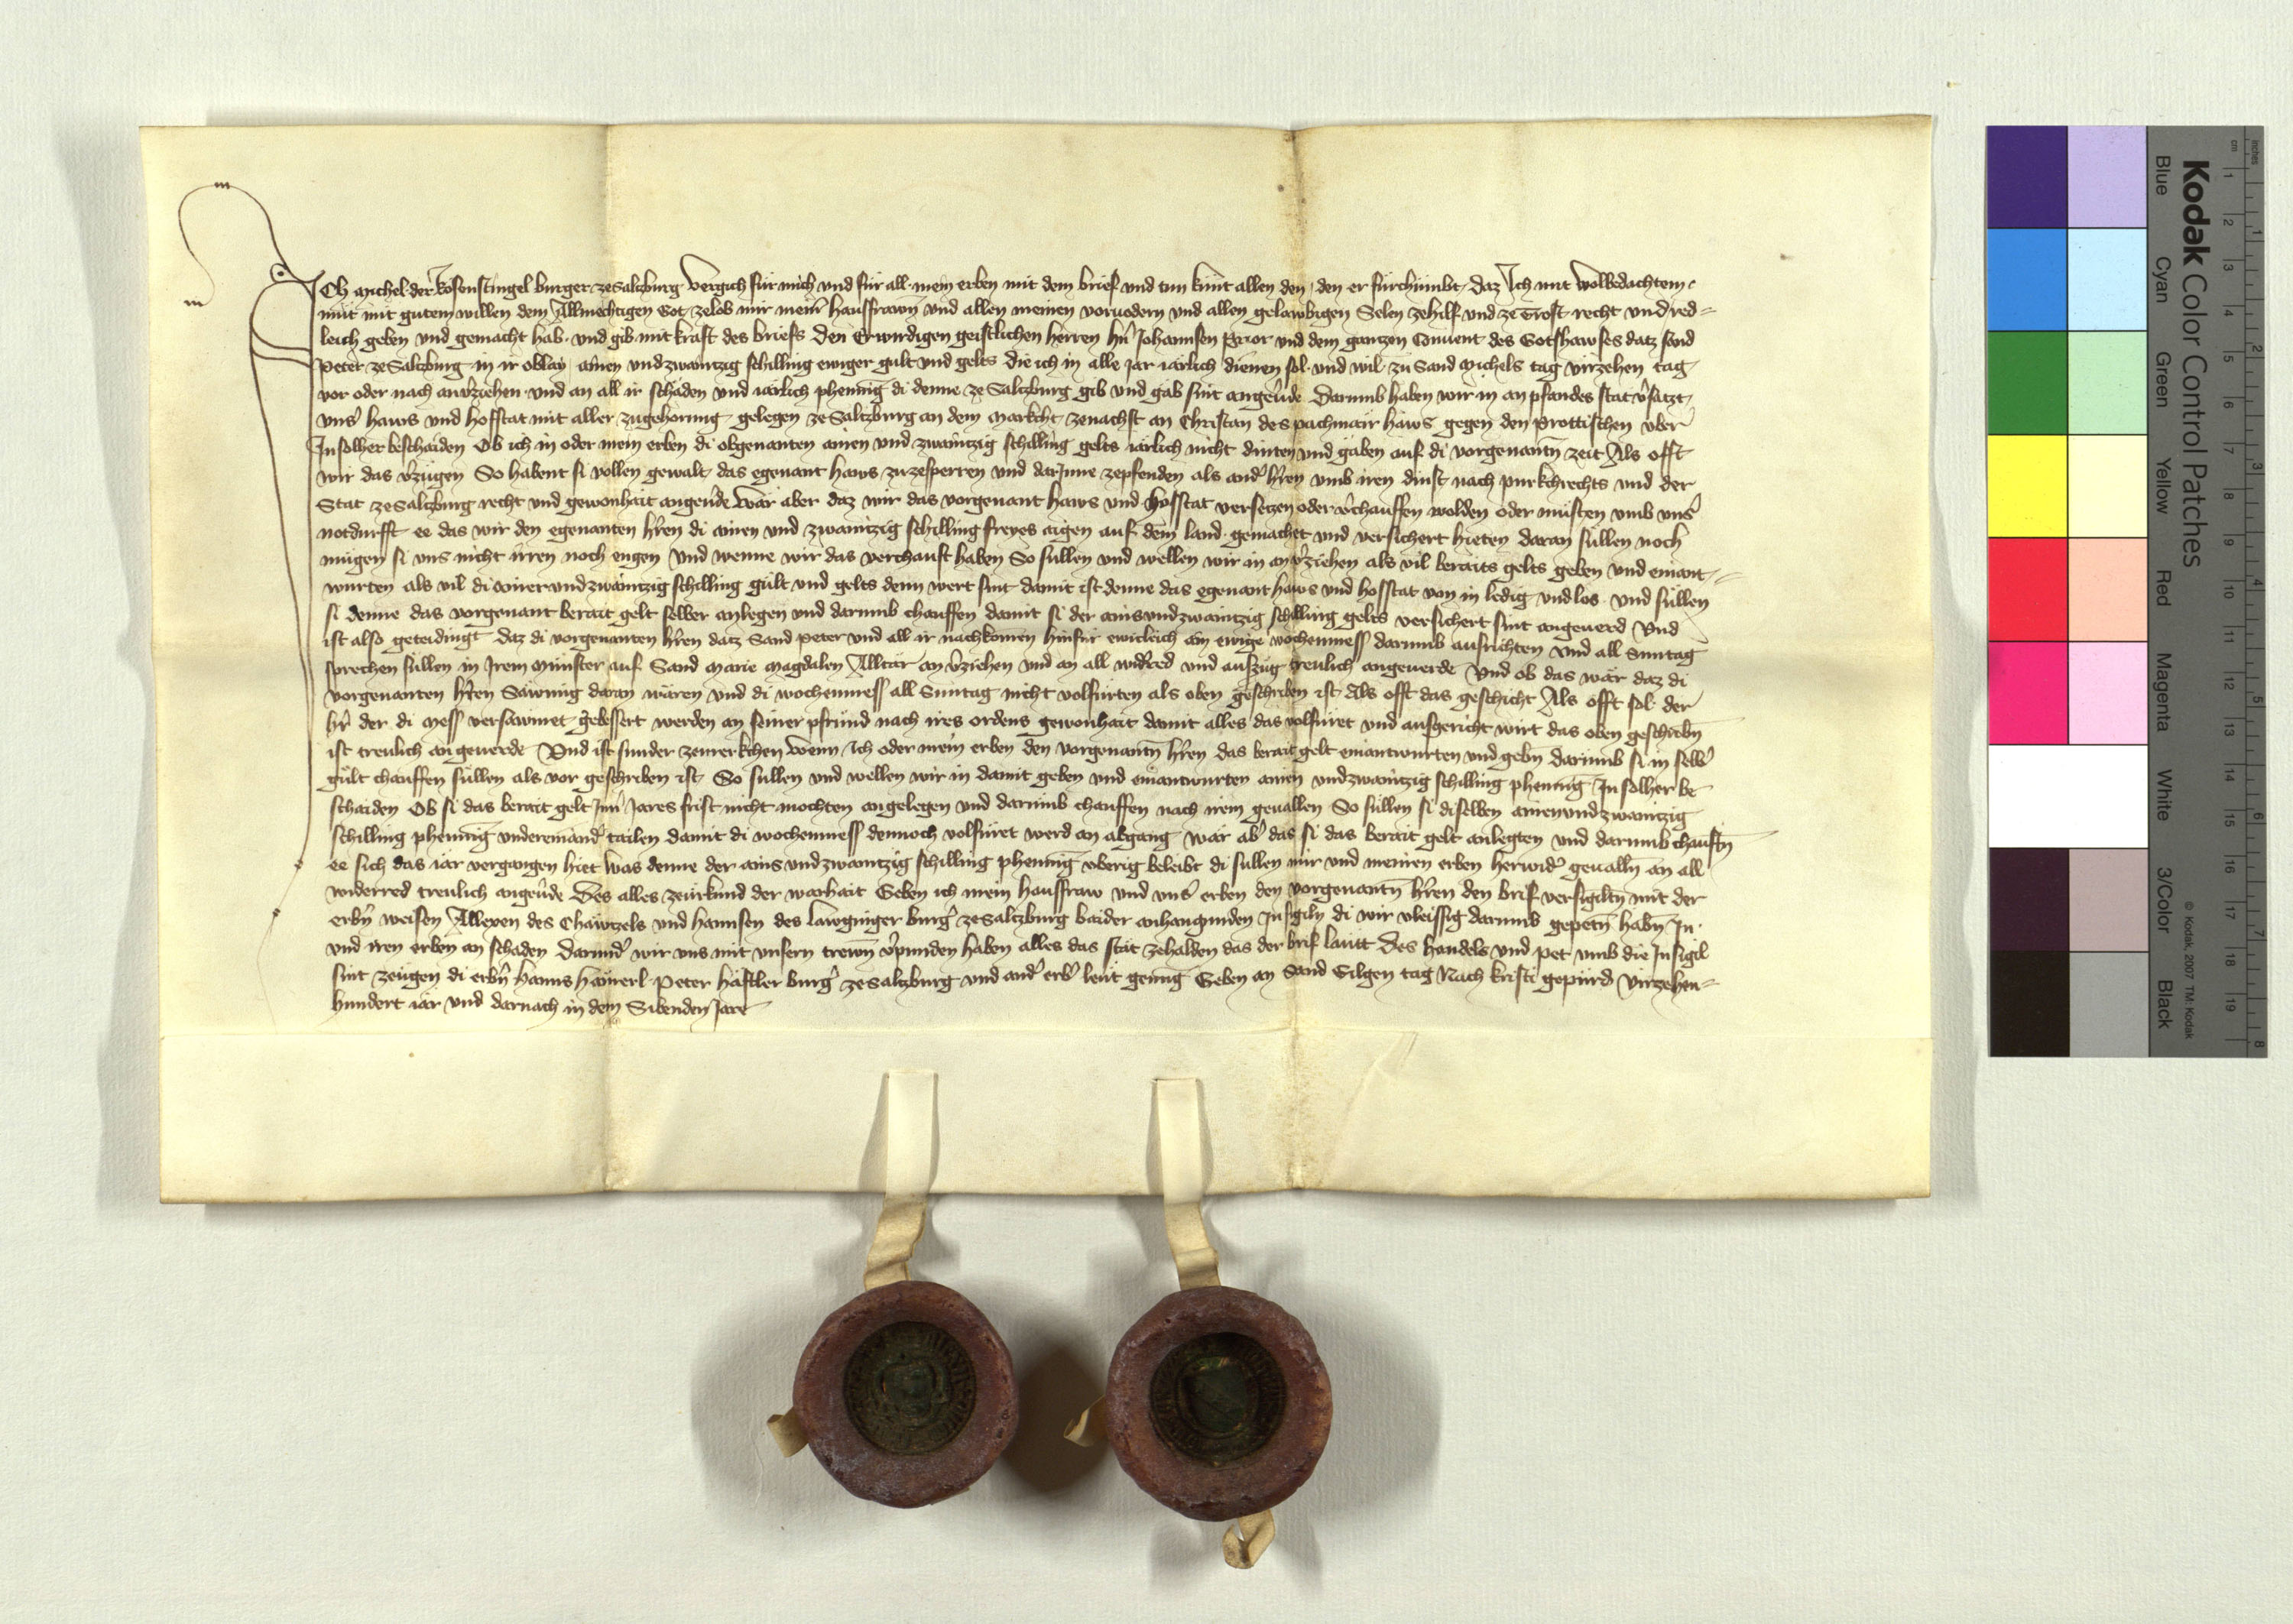 Ich Michel der Rosenstingel burger ze Saltzburg Vergich für mich und für all mein erben mit dem brief und tun kunt allen den, den er fürchumbt, daz Ich mit wolbedachtem
müt mit gutem willen dem Allmechtigen Got zelob mir meinr hausfrawn und allen meinen voruodern und allen gelawbigen Selen zehilf und ze Trost recht und red-
leich geben und gemacht hab, und gib mit kraft des briefs Den Erwirdigen geistlichen herren hn Johannsen Prior und dem gantzen Conuent des Gotshawses datz sand
Peter ze Saltzburg in ir oblay, ainen und zwaintzig schilling ewiger gült und gelts die ich in alle jar iärlich dienen sol, und wil zu Sand Michels tag virzehen tag
vor oder nach anverziehen und an all ir schäden und iärlich phennig di denne ze Saltzburg gib und gäb sint angeuerde Darumb haben wir in an pfandes stat versatzt
unser haws und hofstat mit aller zugehorung gelegen ze Saltzburg an dem Markcht zenachst an Christan des pachmair haws gegen den Prottischen über
In solher bescheiden Ob ich in oder mein erben di obgenanten ainen und zwaintzig schilling gelts iärlich nicht dinten und gäben auf di vorgenantn zeit Als offt
wir das verzügen So habent si vollen gewalt das egenant haws zuzesperren und darInne zepfenden als ander hren umb iren dinst nach purkchrechts und der
Stat ze Saltzburg recht und gewonhait angeuerde wär aber daz wir das vorgenant haws und hofstat versetzen oder verchauffen wolden oder müsten umb unser
notdurfft ee das wir den egenanten hren di ainen und zwaintzig schilling freyes aigen auf dem land gemachet und versichert hieten daran süllen noch
mügen si uns nicht irren noch engen Und wenne wir das verchauft haben So sullen und wellen wir in an verziehen als vil beraits gelts geben und einant-
wurten als vil di ainer und zwaintzig schilling gült und gelts denn wert sint damit ist denne das egenant haws und hofstat von in ledig und los Und süllen
si denne das vorgenant berait gelt selber anlegen und darumb chauffen damit si der ainsundzwaintzig schilling gelts versichert sint angeuerd Und
ist also geteidingt daz di vorgenanten hren datz Sand Peter und all ir nachkomen hinfür ewicleich ain ewige wochenmess darumb ausrichten Und all Suntag
sprechen süllen in Irem Münster auf Sand Marie Magdalen Alltär an verziehen und an all widerred und auszug treulich angeuerde Und ob das wär daz di
vorgenanten hren Säwmig daran wären und di wochenmess all Suntag nicht volfürten als oben geschriben ist Als offt das geschicht Als offt sol der
hr der di mess versäwmet gebessert werden an seiner pfrund nach ires ordens gewonhait damit alles das volfüret und ausgericht wirt das oben geschribn
ist treulich angeuerde Und ist sunder zemerkchen wenn Ich oder mein erben den vorgenantn hren das berait gelt einantwurten und gebn darumb si in selber
gült chauffen süllen als vor geschriben ist So sullen und wellen wir in damit geben und einantwurten ainen undzwaintzig schilling phennig In solher be-
schaiden Ob si das berait gelt Inner Jares frist nicht mochten angelegen und darumb chauffen nach irem geuallen So süllen si diselben ainenundzwaintzig
schilling phennig undereinander tailen damit di wochenmess dennoch volfüret werd an abgang wär aber das si das berait gelt anlegten und darumb chauftn
ee sich das iar vergangen hiet was denne der ains undzwaintzig schilling phennig uberig beleibt di sullen mir und meinen erben herwider geualln an all
widerred treulich angeuerde Des alles zeurkund der warhait Geben ich mein hausfraw und unser erben den vorgenantn hren den brif versigiltn mit der
erbern weisen Allexen des Chäwtzels und hannsen des Lawginger burger ze Saltzburg baider anhangunden Insigiln di wir vleissig darumb gepetn habn In
und iren erben an schaden Darunder wir uns mit unsern trewn verpunden haben alles das stät zehalden das der brif lautt Des handels und pet umb die Insigil
sint zeugen di erbern hanns Häwerl Peter Häftler burger ze Saltzburg und ander erber leut genug Geben an Sand Gilgen tag Nach kristi gepurd Virzehen-
hundert iar und darnach in dem Sibenden Jare
Kodak Color Control Patches
Blue Cyan Green Yellow Red Magenta White 3/Color Black
© Kodak, 2007 TM: Kodak
inches 1 2 3 4 5 6 7 8
cm 1 2 3 4 5 6 7 8 9 10 11 12 13 14 15 16 17 18 19